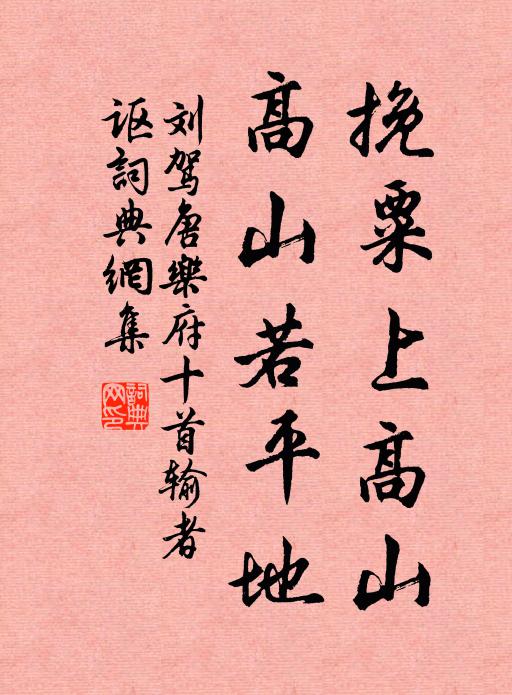 挽粟上高山
高山若平地
刘驾唐樂府十首输者
讴詞典網集
詞典网印